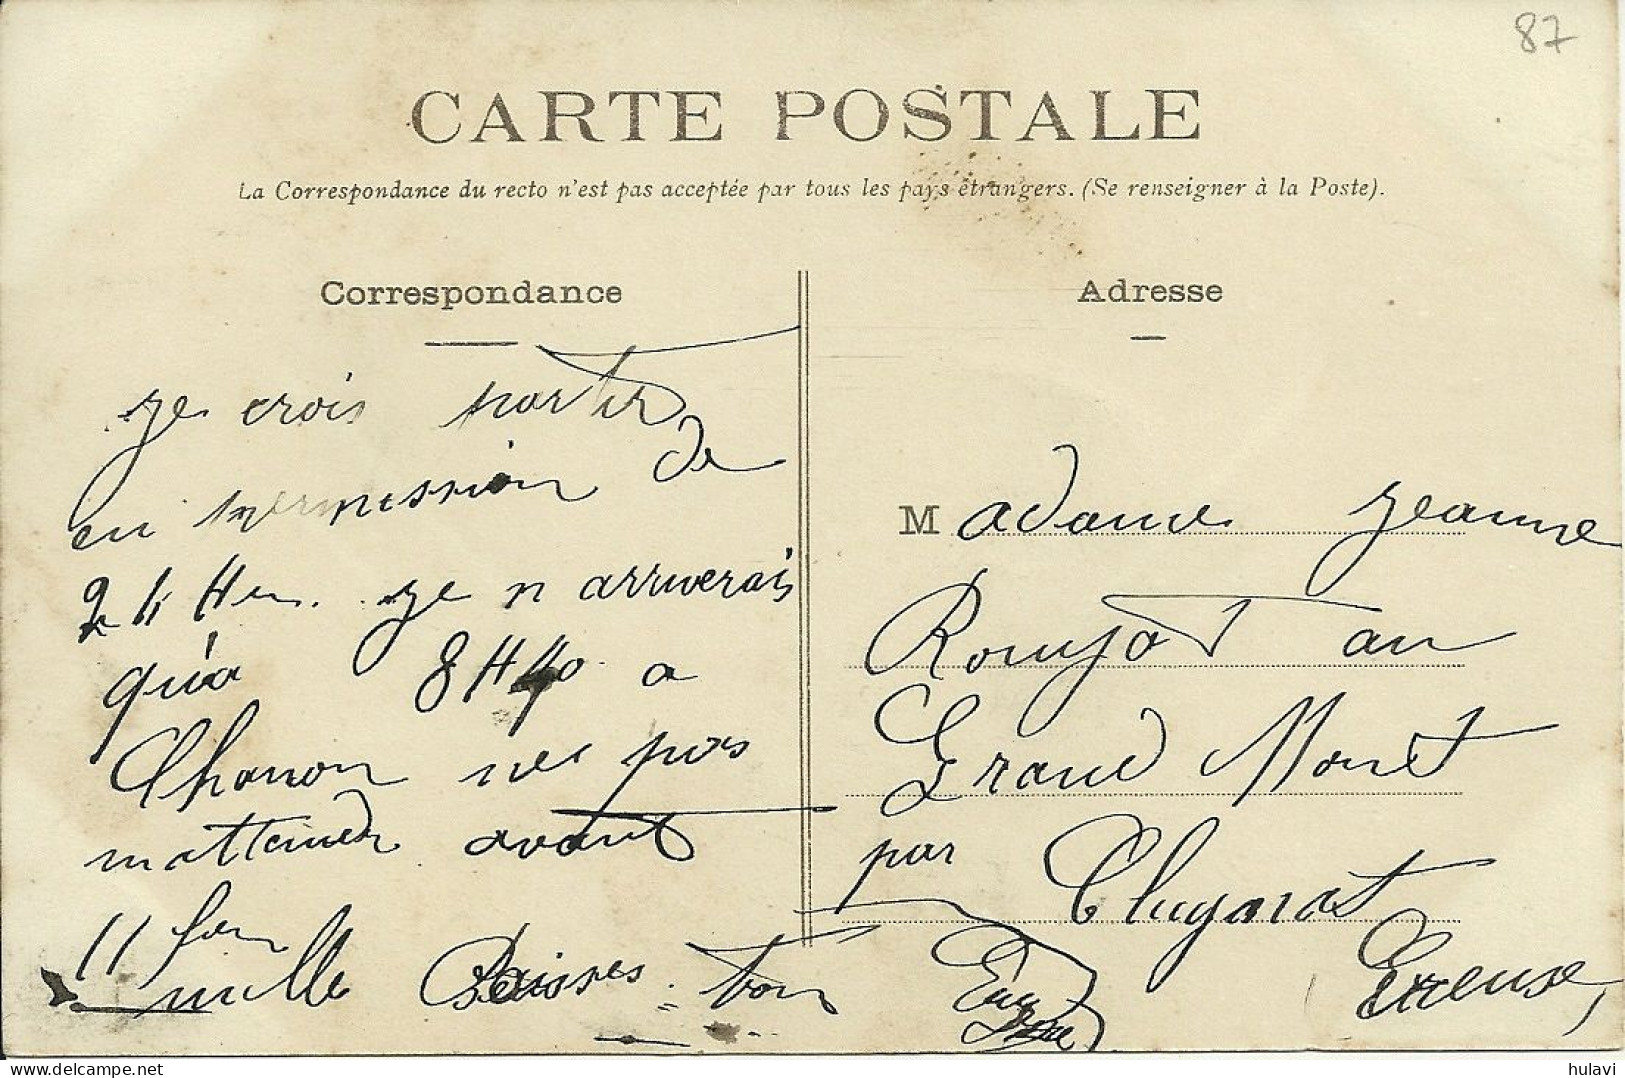 87
CARTE POSTALE
La Correspondance du recto n'est pas acceptée par tous les pays étrangers. (Se renseigner à la Poste).
Correspondance
je crois partir
en permission de
24 Hes. je n arriverais
qu'a 8H40 a
Chanon ne pas
mattendre avant
11 heu
mille Baisses. ton
Adresse
Madame Jeanne
Roujat au
Grand Mont
par Clugnat
Creuse,
hulavi